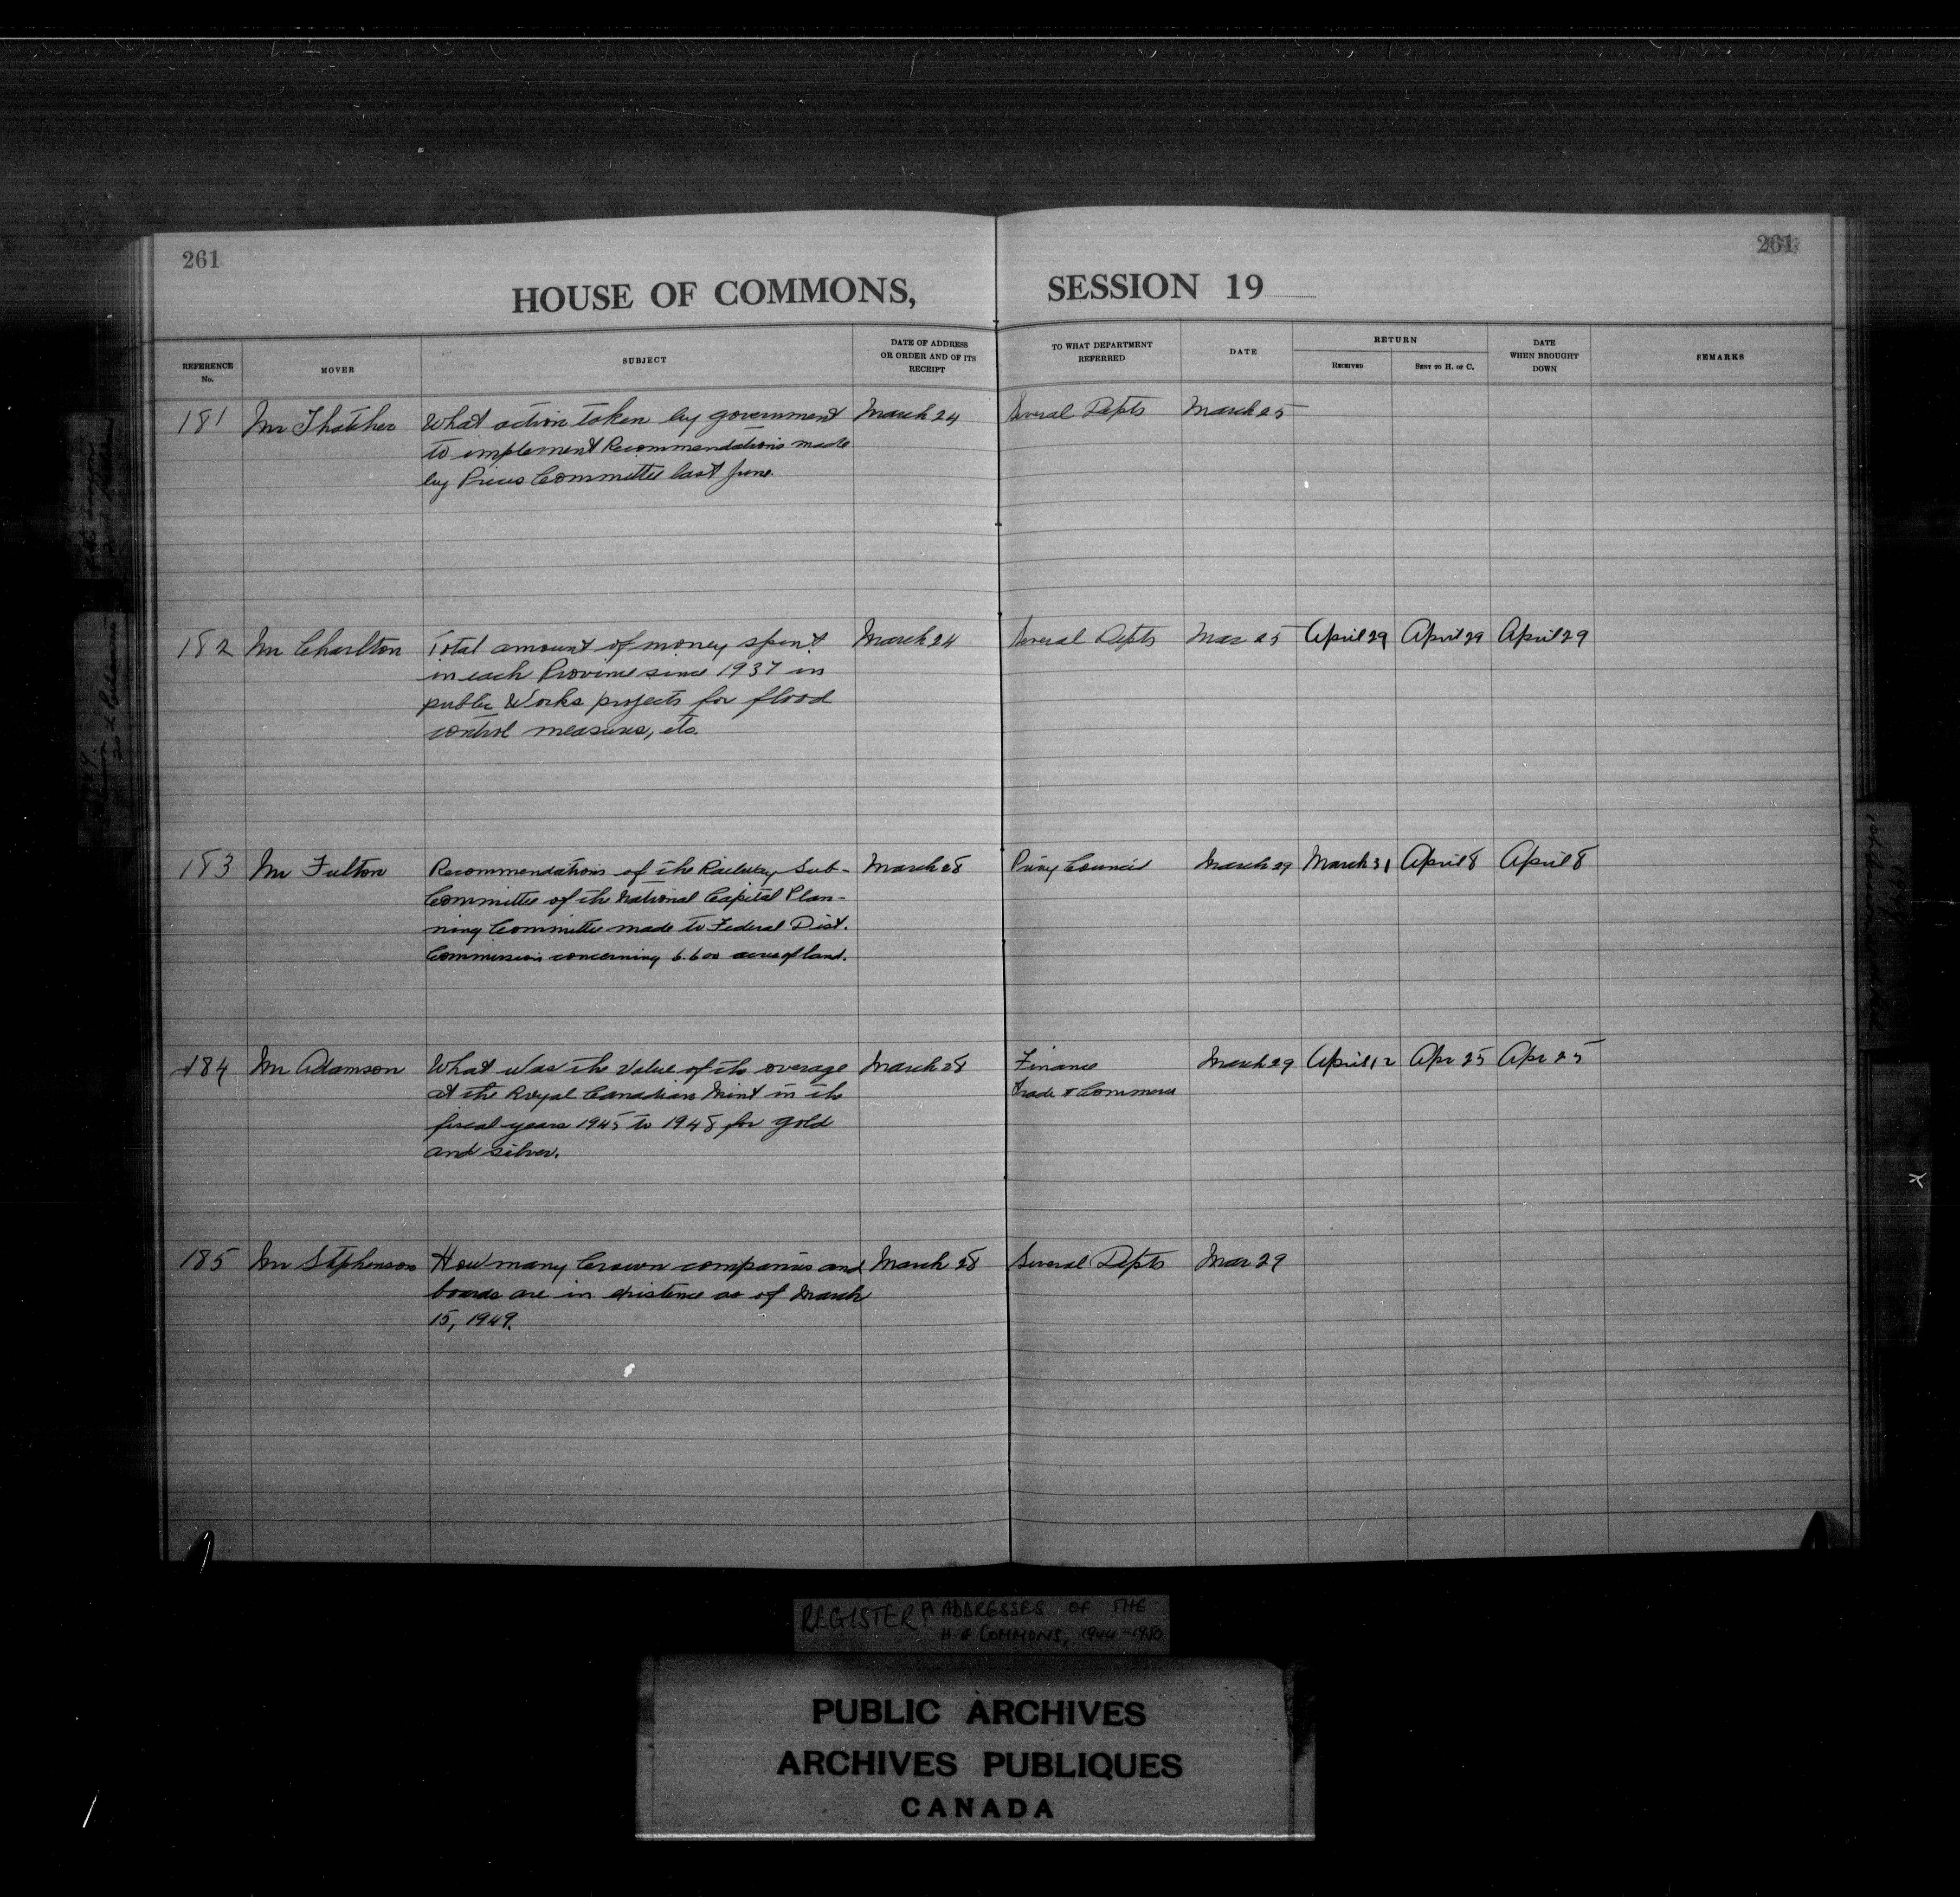 261
261
HOUSE OF COMMONS, SESSION 19
REFERENCE No.
MOVER
SUBJECT
DATE OF ADDRESS OR ORDER AND OF ITS RECEIPT
TO WHAT DEPARTMENT REFERRED
DATE
RETURN
RECEIVED
SENT TO H. OF C.
DATE WHEN BROUGHT DOWN
REMARKS
181 Mr Thatcher What action taken by government March 24 Several Depts March 25
to implement Recommendations made
by Prices Committee last June.
182 Mr Charlton Total amount of money spent March 24 Several Depts Mar 25 April 29 April 29 April 29
in each Province since 1937 in
public Works projects for flood
control measures, etc.
183 Mr Fulton Recommendations of the Railway Sub- March 28 Privy Council March 29 March 31 April 8 April 8
Committee of the National Capital Plan-
ning Committee made to Federal Dist.
Commission concerning 6.600 acres of land.
184 Mr Adamson What was the Value of the overage March 28 Finance March 29 April 12 Apr 25 Apr 25
at the Royal Canadian Mint in the Trade & Commerce
fiscal years 1945 to 1948 for gold
and silver.
185 Mr Stephenson How many Crown companies and March 28 Several Depts Mar 29
boards are in existence as of March
15, 1949.
REGISTER OF ADDRESSES OF THE
H. of COMMONS, 1944-1950
PUBLIC ARCHIVES
ARCHIVES PUBLIQUES
CANADA